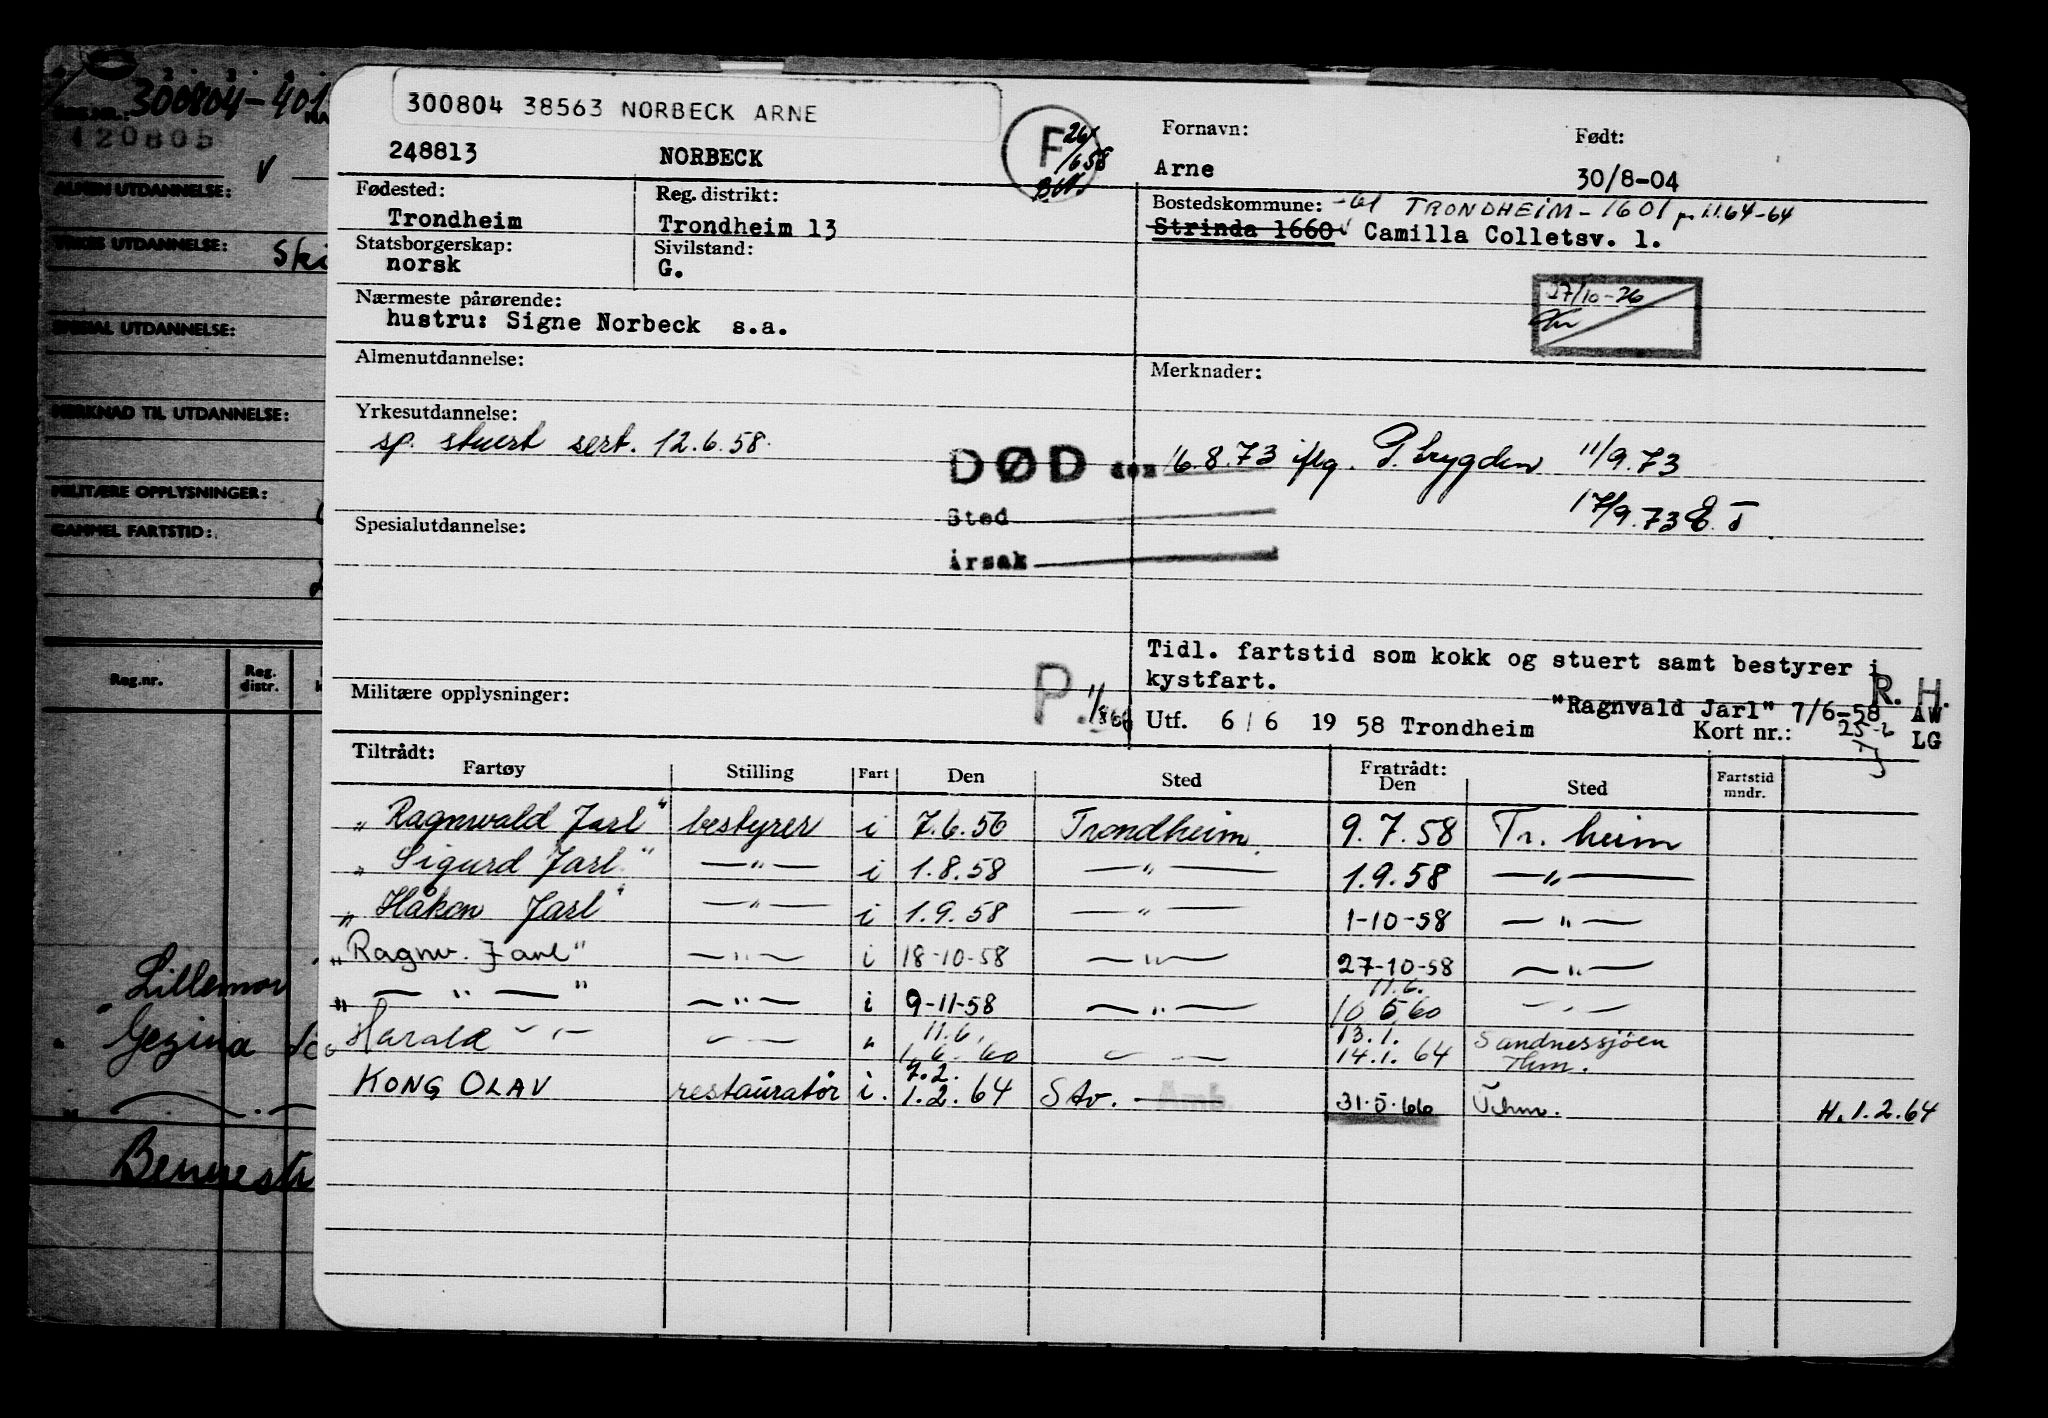 300804-401
120805
V
ALMEN UTDANNELSE:
YRKES UTDANNELSE: Ski
SPESIAL UTDANNELSE:
MERKNAD TIL UTDANNELSE:
MILITÆRE OPPLYSNINGER:
GAMMEL FARTSTID:
Reg.nr. Reg. distr.
Lillemor
" Gezina
Bennestr
300804 38563 NORBECK ARNE
F 26/6 58
248813 NORBECK
Fornavn: Født:
Arne 30/8-04
Fødested: Reg. distrikt:
Trondheim Trondheim 13
Bostedskommune: -61 TRONDHEIM-1601 pr. 1.1.64-64
Strinda 1660 Camilla Colletsv. 1.
Statsborgerskap: Sivilstand:
norsk G.
27/10-26
Nærmeste pårørende:
hustru: Signe Norbeck s.a.
Almenutdannelse:
Merknader:
Yrkesutdannelse:
sp. stuert sert. 12.6.58.
DØD den 16.8.73 iflg. P. trygden 11/9.73
17/9.73 E.T
Sted
Årsak
Spesialutdannelse:
Tidl. fartstid som kokk og stuert samt bestyrer i
kystfart.
R. H.
Militære opplysninger:
P. 11/8 66
"Ragnvald Jarl" 7/6-58 AW
Utf. 6/6 19 58 Trondheim Kort nr.: 25-6 LG
Tiltrådt: Fratrådt:
Fartøy Stilling Fart Den Sted Den Sted Fartstid mndr.
"Ragnvald Jarl" bestyrer i 7.6.56 Trondheim. 9.7.58 Tr. heim
"Sigurd Jarl" —"— i 1.8.58 —"— 1.9.58 —"—
"Håkon Jarl" —"— i 1.9.58 —"— 1-10-58 —"—
"Ragnv. Jarl" —"— i 18-10-58 —"— 27-10-58 —"—
"—"—" —"— i 9-11-58 —"— 11.6. 10 5 60 —"—
Harald —"— —"— " 11.6. 1.6-60 —"— 13.1. 14.1.64 Sandnessjøen Thm.
KONG OLAV restauratør i. 7.2. 1.2.64 Stv. — Amb. 31.5.66 Thm. H.1.2.64